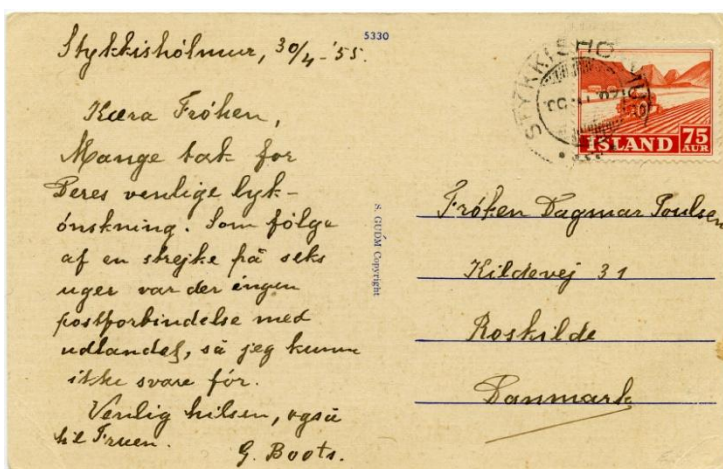 5330
Stykkishólmur, 30/4-'55.
Kæra Frøken,
Mange tak for
Deres venlige lyk-
ónskning. Som fólge
af en strejke på seks
uger var der ingen
postforbindelse med
udlandet, så jeg kunne
ikke svare fór.
Venlig hilsen, også
til Fruen.
G. Boots.
S. GUÐM Copyright
STYKKISHÓLMUR
ÍSLAND 75
AUR
Frøken Dagmar Poulsen
Kildevej 31
Roskilde
Danmark